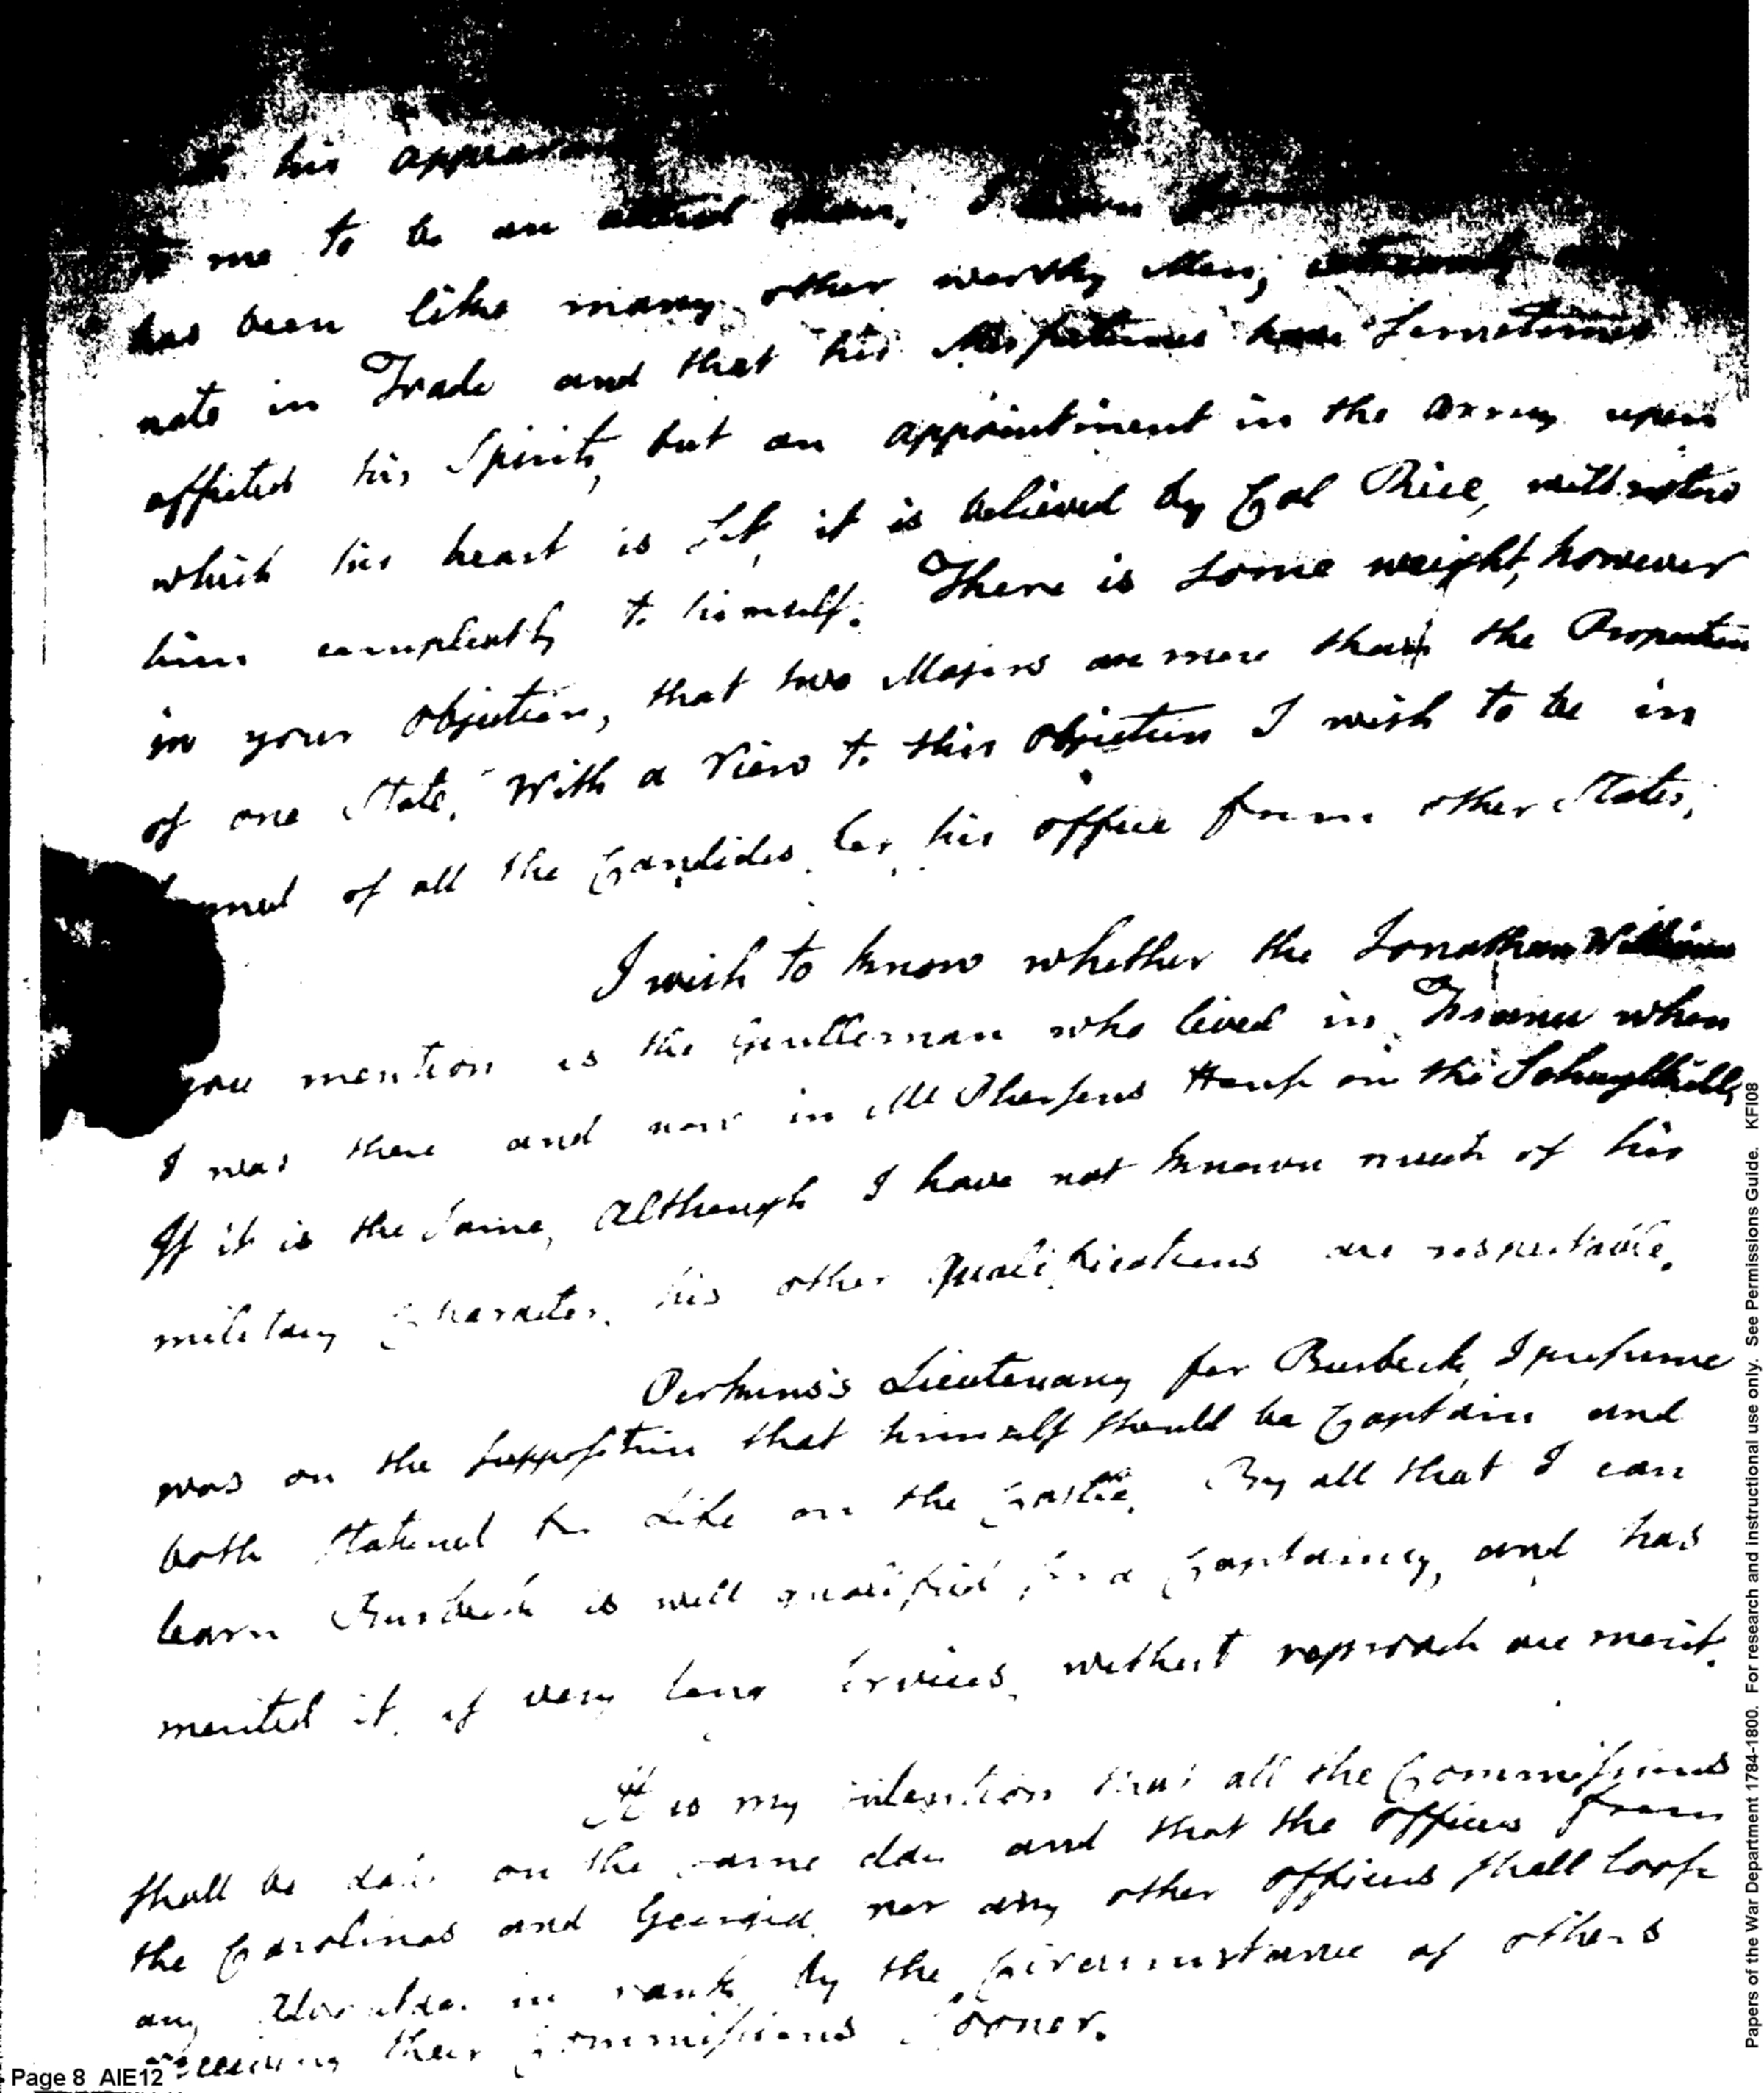 his appear
me to be an
has been like many other worthy Men, extremely
nate in Trade and that his Misfortunes have Sometimes
affected his Spirits, but an appointment in the Army upon
which his heart is Set, it is believed by Col Rice, will restore
him compleatly to himself. There is some weight, however
in your objection, that two Majors are more than the Proportion
of one State. With a View to this objection I wish to be in
of all the Candides for his office from other States,
I wish to know whether the Jonathan Williams
you mention is the Gentleman who lived in France when
I was there and now in Mt Pleasant House on the Schuylkill
If it is the Same, Although I have not known much of his
military Character, his other Qualifications are respectable.
Perkins's Lieutenancy for Burbeck, I presume
was on the supposition that himself should be Captain and
both Stationed for Life on the Castle. By all that I can
learn Burbeck is well qualified for a Captaincy, and has
merited it, if very long services, without reproach are merit.
It is my intention that all the Commissions
shall be dated on the same day and that the officers from
the Carolinas and Georgia, nor any other officers shall loose
any in rank, by the Circumstance of others
receiving their Commissions Sooner.
Page 8 AIE12
Papers of the War Department 1784-1800. For research and instructional use only. See Permissions Guide. KFI08